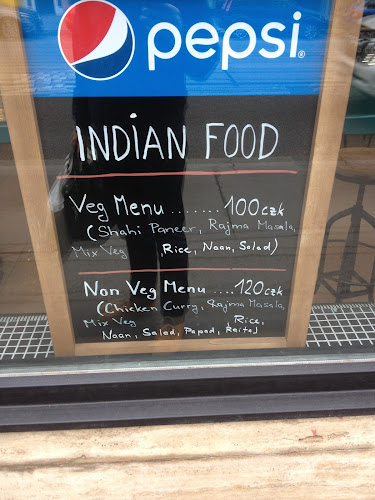 pepsi
INDIAN FOOD
Veg Menu ....... 100 CZK
(Shahi Paneer, Rajma Masala,
Mix Veg , Rice, Naan, Salad)
Non Veg Menu .... 120 CZK
(Chicken Curry, Rajma Masala,
Mix Veg Rice,
Naan, Salad, Papad, Raita)